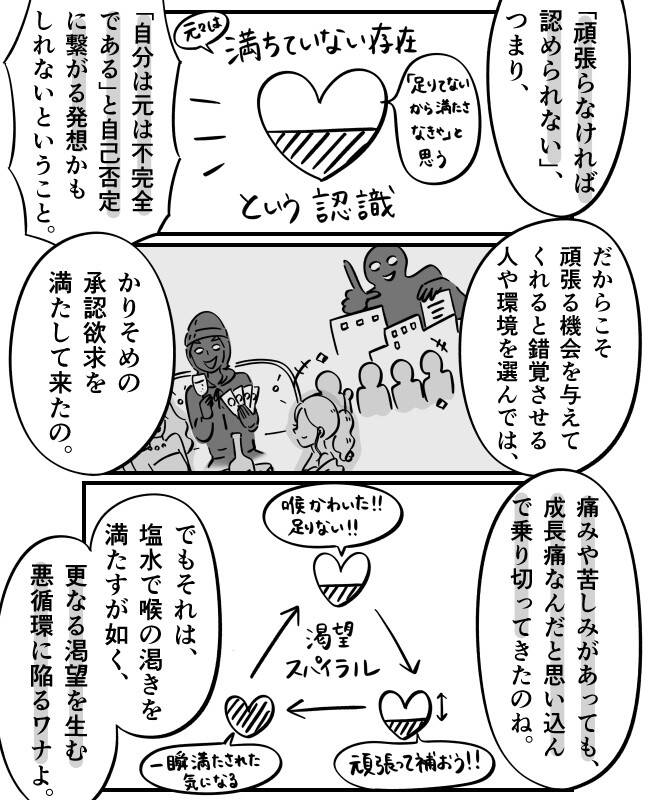 「頑張らなければ
認められない」、
つまり、
元々は
満ちていない存在
「足りてない
から満たさ
なきゃ」と
思う
という認識
「自分は元は不完全
である」と自己否定
に繋がる発想かも
しれないということ。
だからこそ
頑張る機会を与えて
くれると錯覚させる
人や環境を選んでは、
かりそめの
承認欲求を
満たして来たの。
痛みや苦しみがあっても、
成長痛なんだと思い込ん
で乗り切ってきたのね。
喉かわいた!!
足りない!!
渇望
スパイラル
頑張って補おう!!
一瞬満たされた
気になる
でもそれは、
塩水で喉の渇きを
満たすが如く、
更なる渇望を生む
悪循環に陥るワナよ。